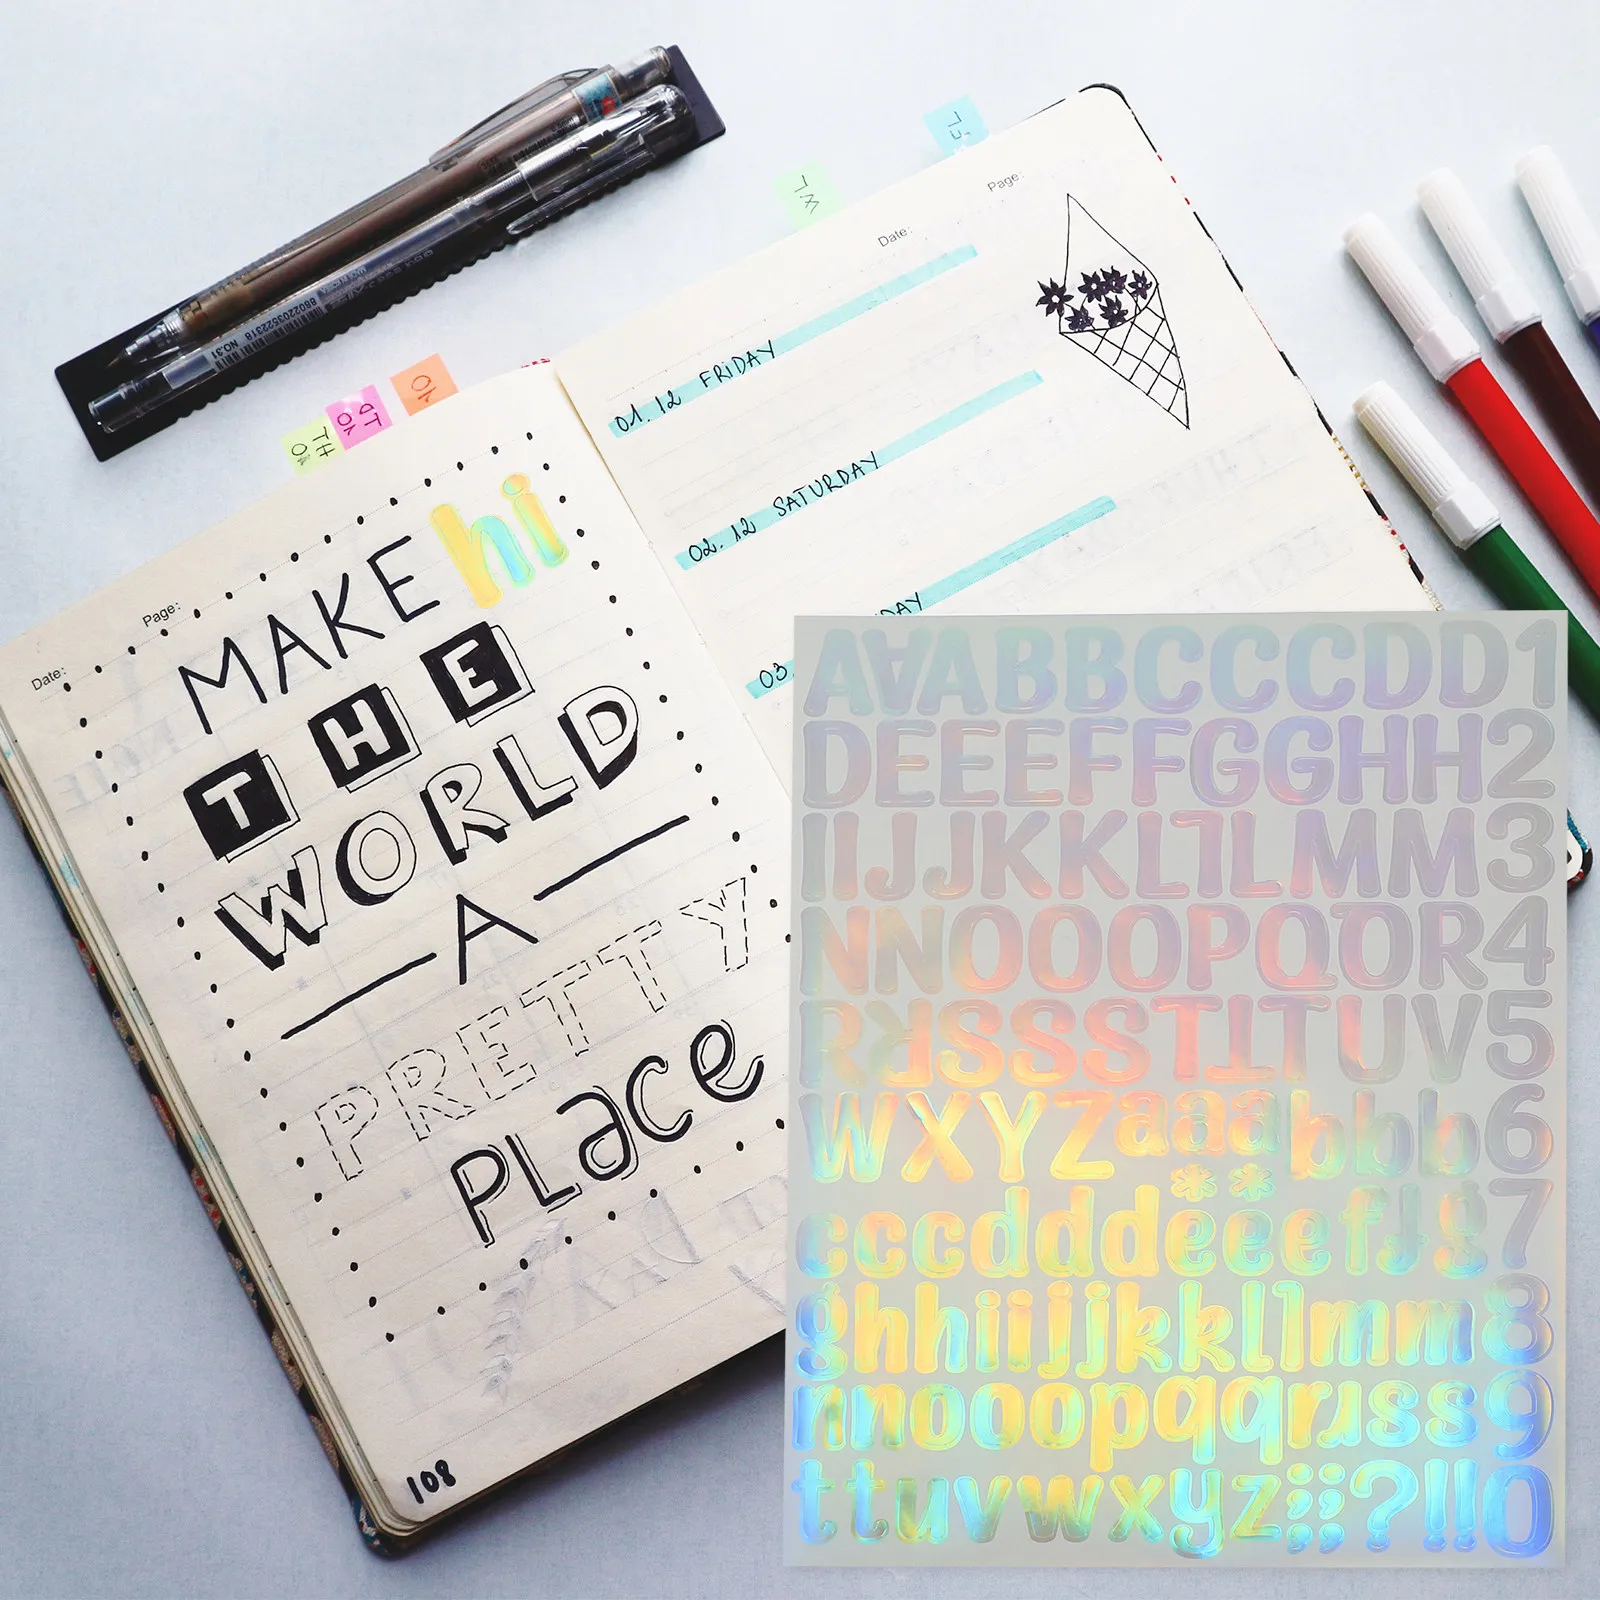 Date:
Page:
MAKE hi
THE
WORLD
A
PRETTY
PLace
108
Date:
Page:
01.12 FRIDAY
02.12 SATURDAY
03.
DAY
8802203522318 NO.31
AAABBCCCDD1
DEEEFFGGHH2
IIJJKKLLLMM3
NNOOOPQQR4
RRSSSSTTTUV5
WXYZaaabbb6
cccdddeeeffg7
ghhiijjkkllmm8
nnooopqqrrsss9
ttuvwxyz;;?!!0